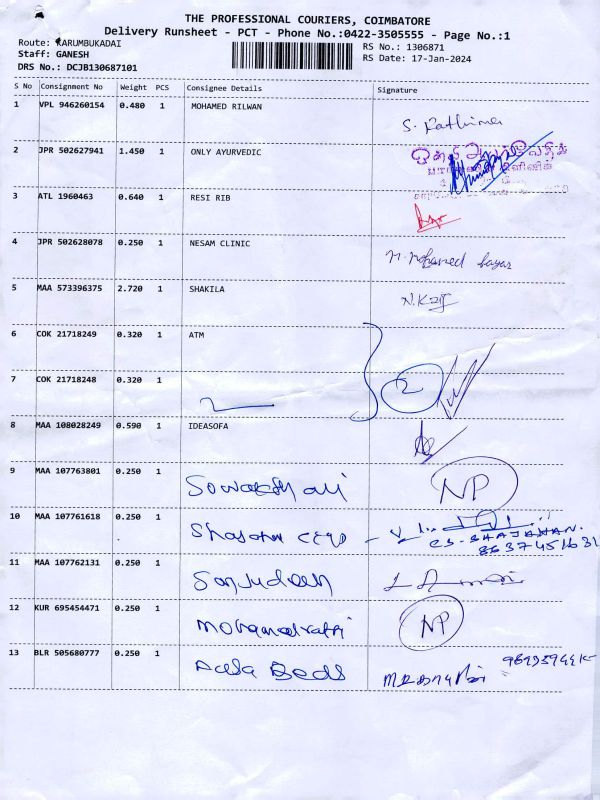 THE PROFESSIONAL COURIERS, COIMBATORE
Delivery Runsheet - PCT - Phone No.:0422-3505555 - Page No.:1
Route: KARUMBUKADAI
Staff: GANESH
DRS No.: DCJB130687101
RS No.: 1306871
RS Date: 17-Jan-2024
S No Consignment No Weight PCS Consignee Details Signature
1 VPL 946260154 0.480 1 MOHAMED RILWAN
2 JPR 502627941 1.450 1 ONLY AYURVEDIC
3 ATL 1960463 0.640 1 RESI RIB
4 JPR 502628078 0.250 1 NESAM CLINIC M. Mohamed
5 MAA 573396375 2.720 1 SHAKILA
6 COK 21718249 0.320 1 ATM
7 COK 21718248 0.320 1 2
8 MAA 108028249 0.590 1 IDEASOFA
9 MAA 107763801 0.250 1 NP
10 MAA 107761618 0.250 1
CS. SHAJAHAN.
8637451631
11 MAA 107762131 0.250 1
12 KUR 695454471 0.250 1 NP
13 BLR 505680777 0.250 1 Beds